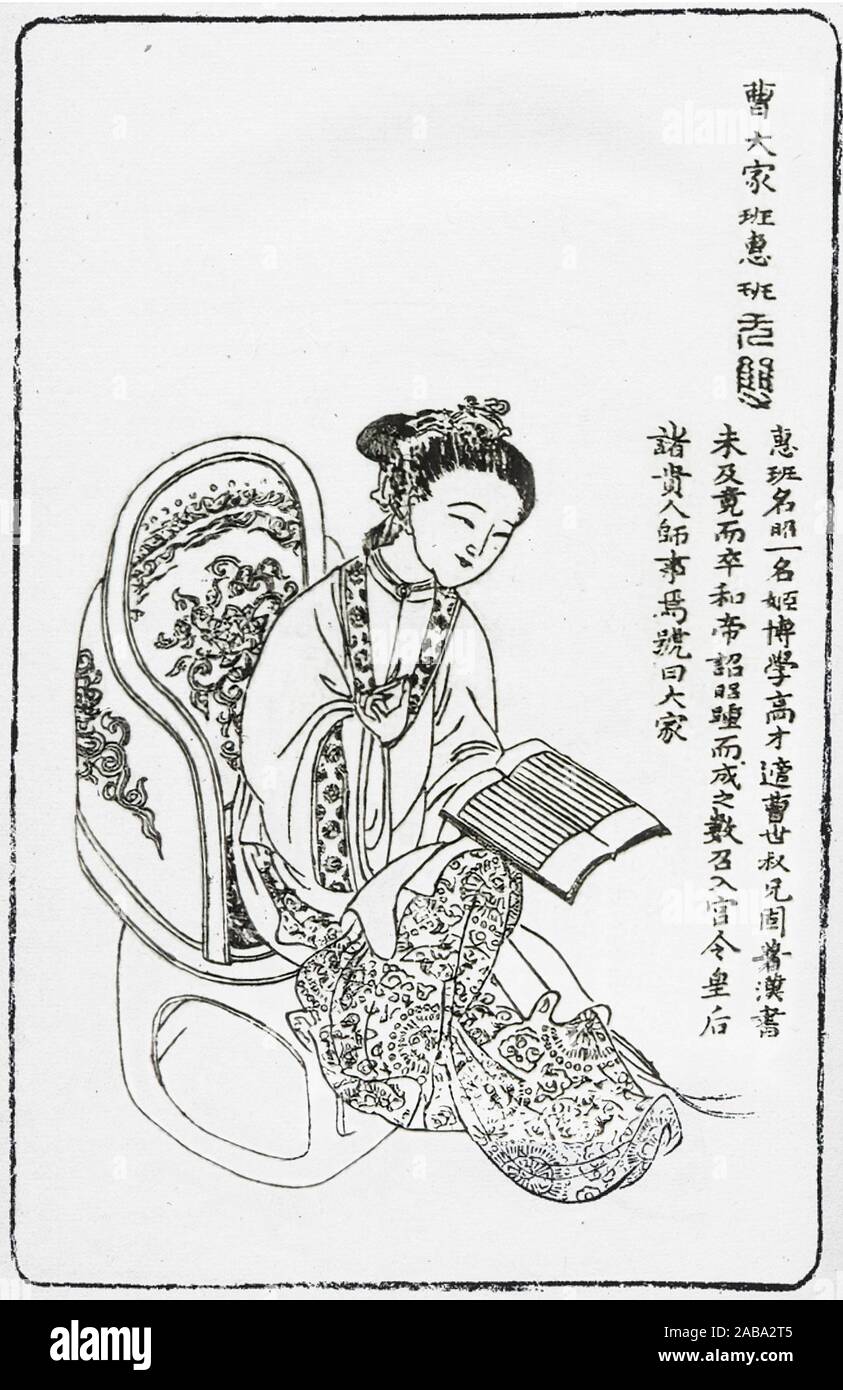 曹大家班惠班
惠班名昭一名姬博學高才適曹世叔兄固著漢書
未及竟而卒和帝詔昭踵而成之數召入宮令皇后
諸貴人師事焉號曰大家
alamy
Image ID: 2ABA2T5
www.alamy.com